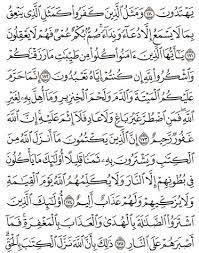 يَهْتَدُونَ ۝١٧٠ وَمَثَلُ ٱلَّذِينَ كَفَرُوا۟ كَمَثَلِ ٱلَّذِى يَنْعِقُ
بِمَا لَا يَسْمَعُ إِلَّا دُعَآءً وَنِدَآءً صُمٌّۢ بُكْمٌ عُمْىٌ فَهُمْ لَا يَعْقِلُونَ
۝١٧١ يَـٰٓأَيُّهَا ٱلَّذِينَ ءَامَنُوا۟ كُلُوا۟ مِن طَيِّبَـٰتِ مَا رَزَقْنَـٰكُمْ
وَٱشْكُرُوا۟ لِلَّهِ إِن كُنتُمْ إِيَّاهُ تَعْبُدُونَ ۝١٧٢ إِنَّمَا حَرَّمَ
عَلَيْكُمُ ٱلْمَيْتَةَ وَٱلدَّمَ وَلَحْمَ ٱلْخِنزِيرِ وَمَآ أُهِلَّ بِهِۦ لِغَيْرِ
ٱللَّهِ فَمَنِ ٱضْطُرَّ غَيْرَ بَاغٍ وَلَا عَادٍ فَلَآ إِثْمَ عَلَيْهِ إِنَّ ٱللَّهَ
غَفُورٌ رَّحِيمٌ ۝١٧٣ إِنَّ ٱلَّذِينَ يَكْتُمُونَ مَآ أَنزَلَ ٱللَّهُ مِنَ
ٱلْكِتَـٰبِ وَيَشْتَرُونَ بِهِۦ ثَمَنًا قَلِيلًا أُو۟لَـٰٓئِكَ مَا يَأْكُلُونَ
فِى بُطُونِهِمْ إِلَّا ٱلنَّارَ وَلَا يُكَلِّمُهُمُ ٱللَّهُ يَوْمَ ٱلْقِيَـٰمَةِ
وَلَا يُزَكِّيهِمْ وَلَهُمْ عَذَابٌ أَلِيمٌ ۝١٧٤ أُو۟لَـٰٓئِكَ ٱلَّذِينَ
ٱشْتَرَوُا۟ ٱلضَّلَـٰلَةَ بِٱلْهُدَىٰ وَٱلْعَذَابَ بِٱلْمَغْفِرَةِ فَمَآ
أَصْبَرَهُمْ عَلَى ٱلنَّارِ ۝١٧٥ ذَٰلِكَ بِأَنَّ ٱللَّهَ نَزَّلَ ٱلْكِتَـٰبَ بِٱلْحَقِّ